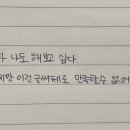 나도 해보고 싶다.
지만 이건 글씨체로 만족할수 없어